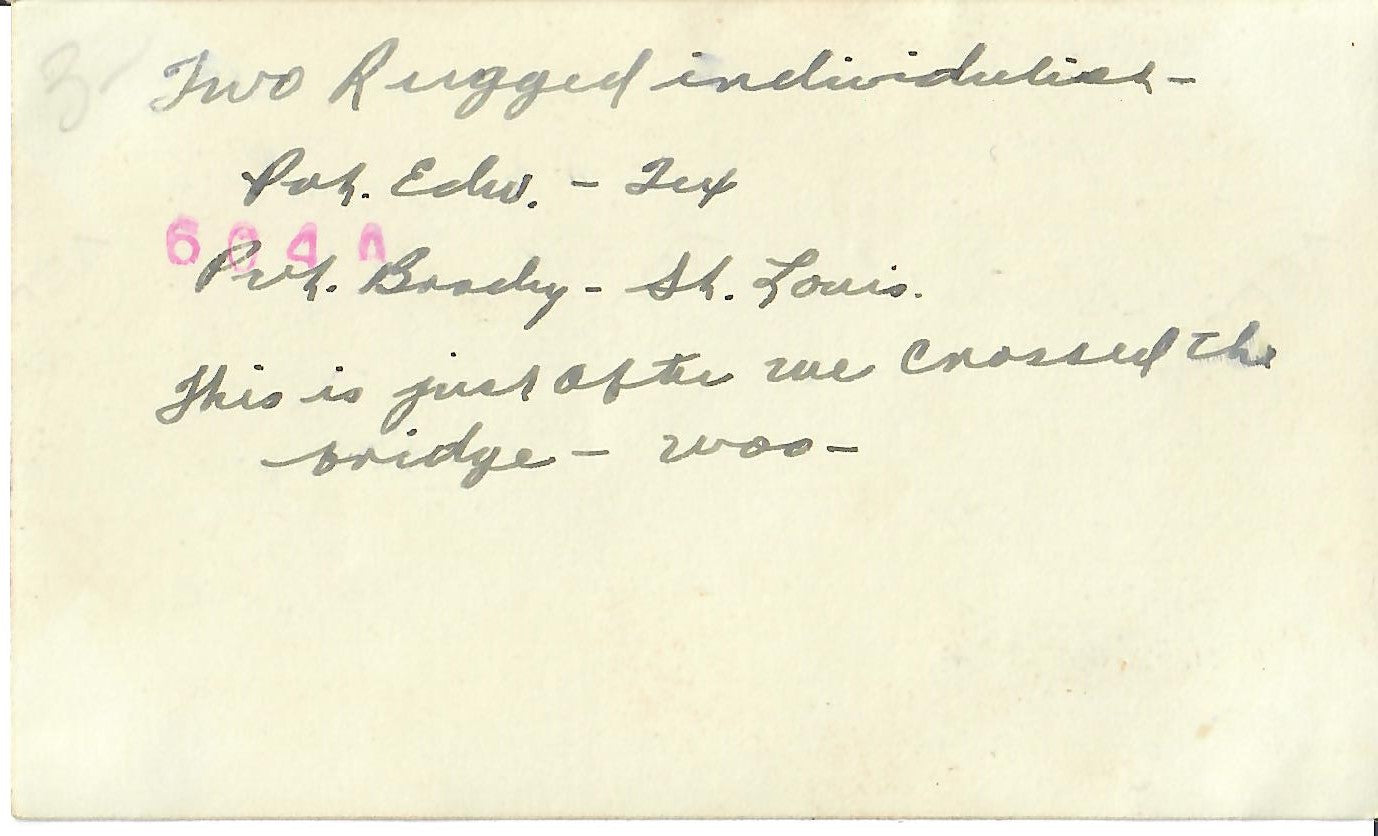 3
Two Rugged individulist -
Pvt. Edw. - Tex
604A
Pvt. Brady - St. Louis.
This is just after we crossed the
bridge - woo -